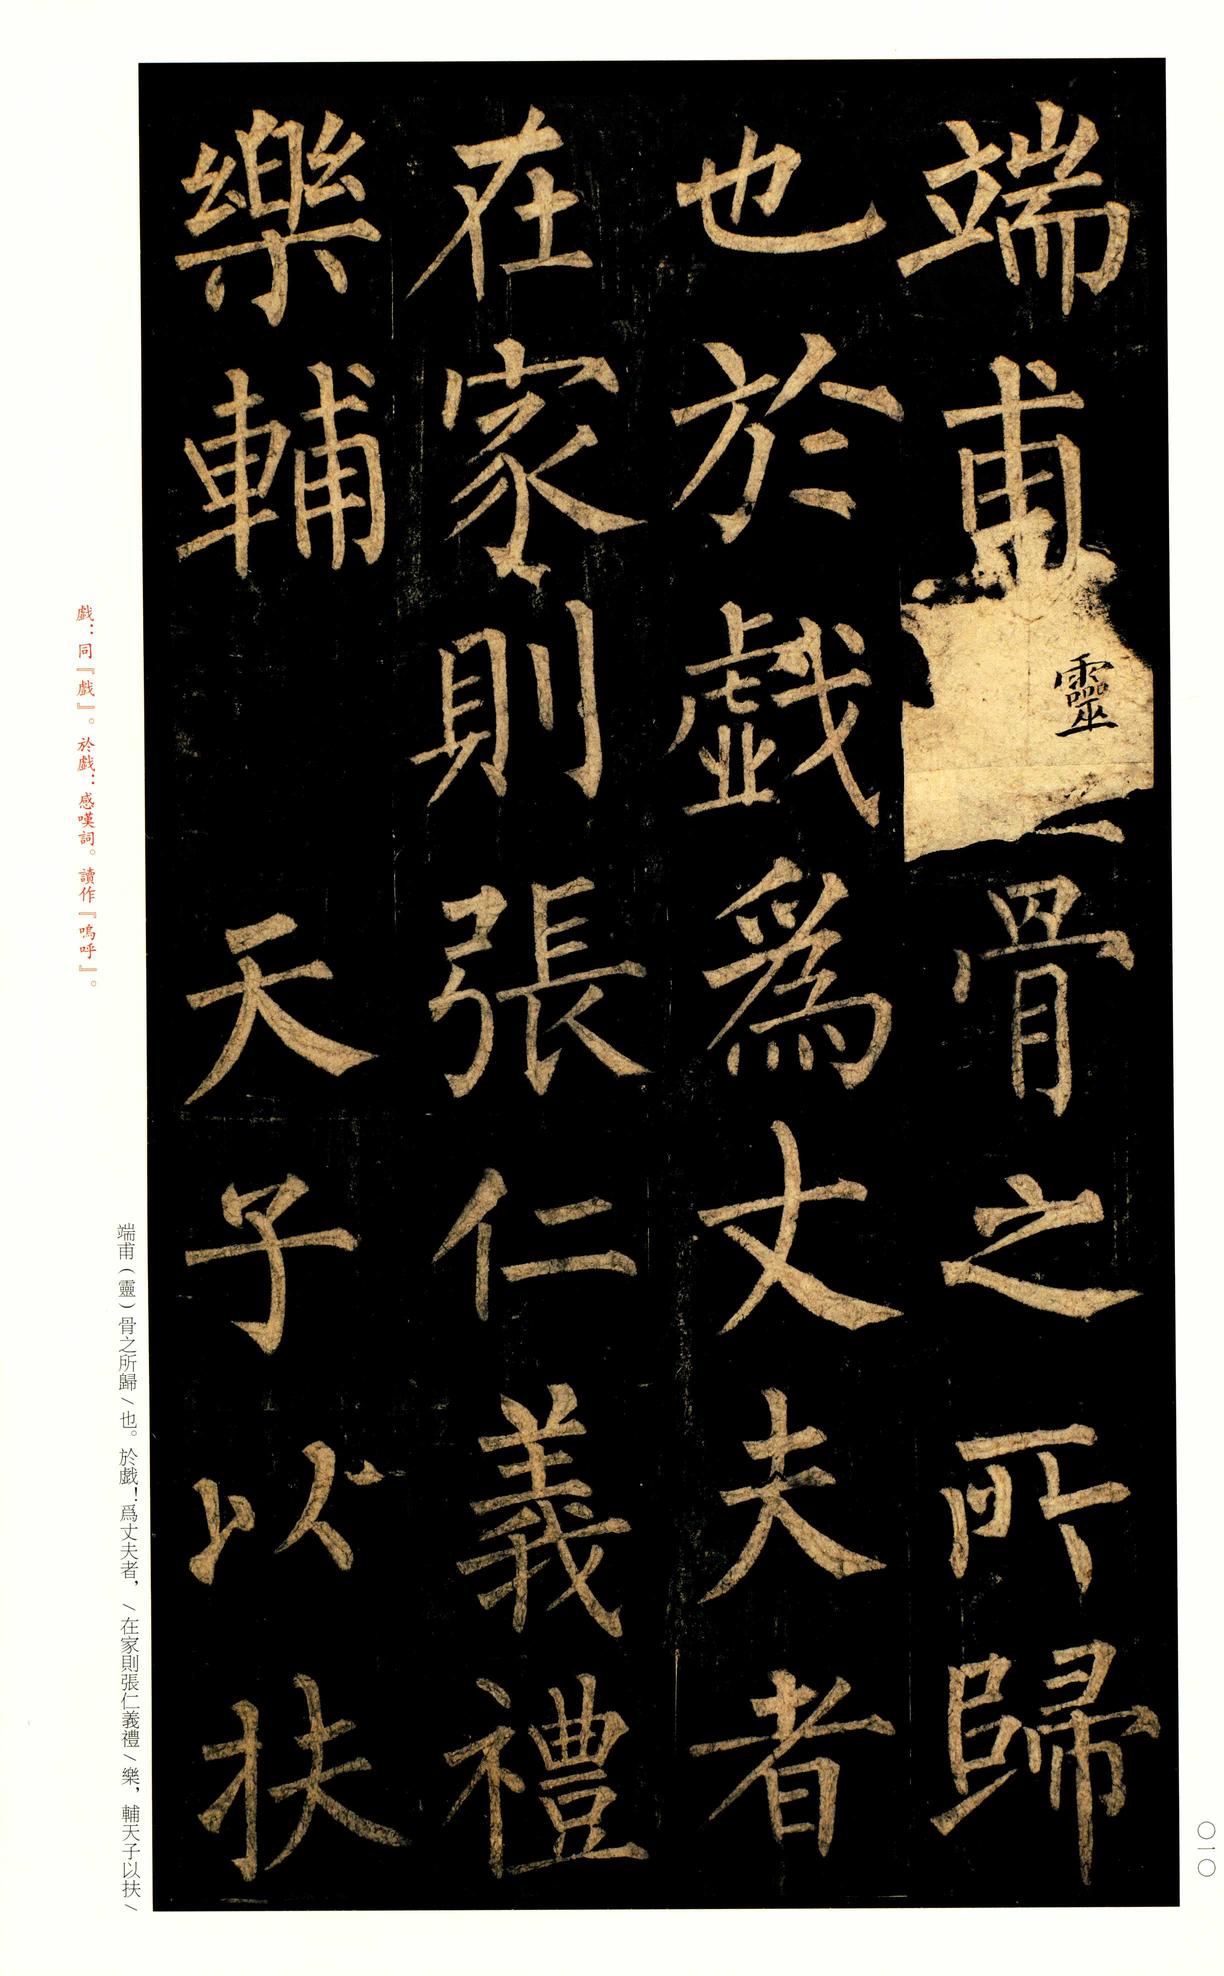 端甫靈骨之所歸
也於戱爲丈夫者
在家則張仁義禮
樂輔天子以扶
戱：同『戲』。於戱：感嘆詞。讀作『嗚呼』。
端甫（靈）骨之所歸／也。於戱！爲丈夫者，／在家則張仁義禮／樂，輔天子以扶／
〇一〇